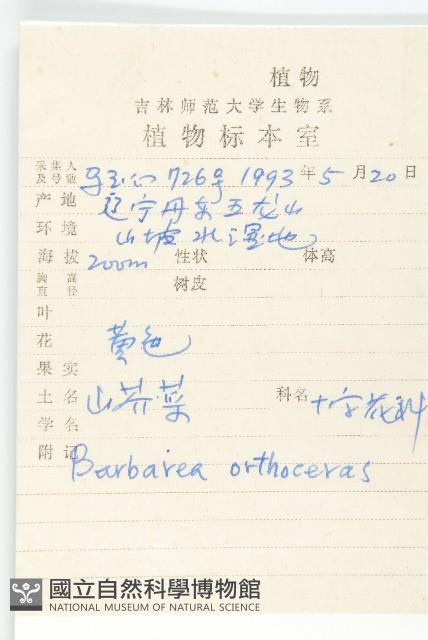 植物
吉林师范大学生物系
植物标本室
采集人及号数 马玉心 726号 1993 年 5 月 20 日
产地 辽宁丹东五龙山
环境 山坡水湿地
海拔 200m 性状 体高
胸高直径 树皮
叶
花 黄色
果实
土名 山芥菜 科名 十字花科
学名
附记 Barbarea orthoceras
國立自然科學博物館
NATIONAL MUSEUM OF NATURAL SCIENCE